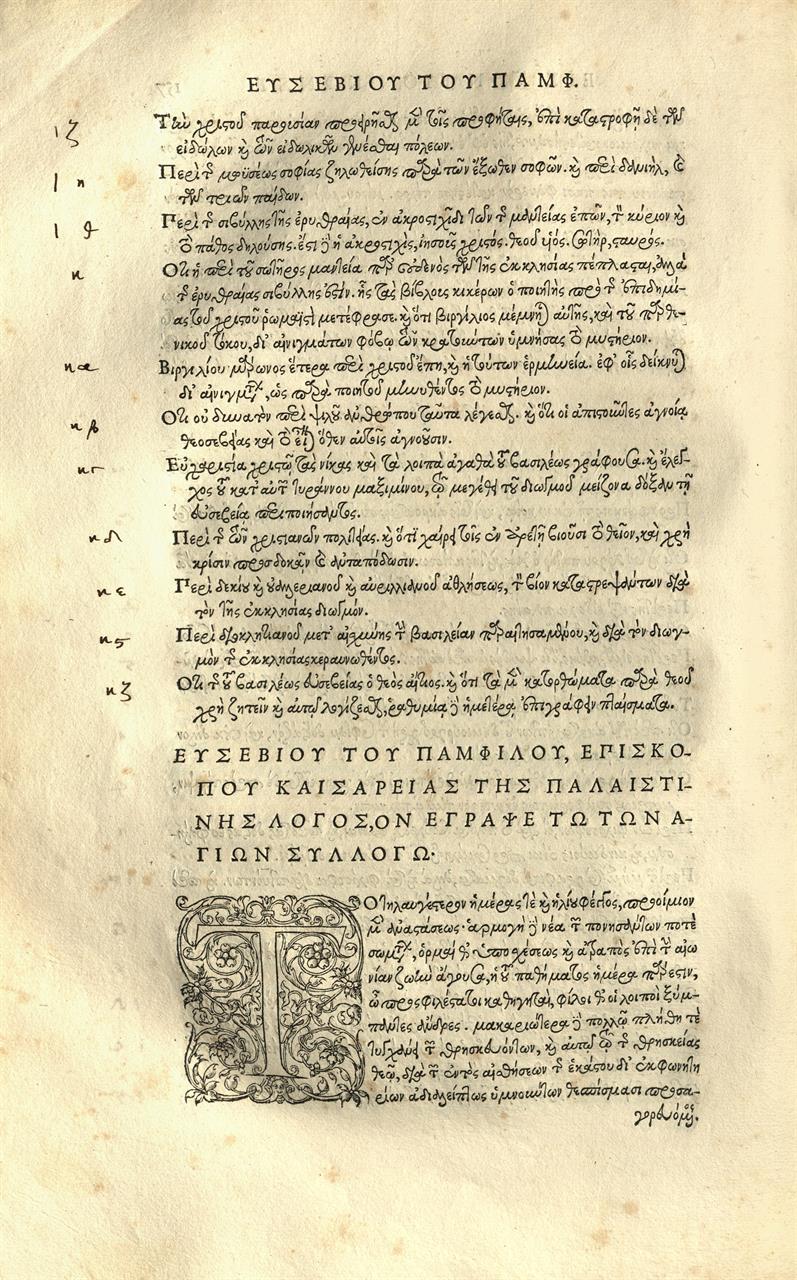 ΕΥΣΕΒΙΟΥ ΤΟΥ ΠΑΜΦ.
ιζ Τὴν χριστοῦ παρουσίαν προειρῆσθαι μὲν τοῖς προφήταις, ἐπὶ καταστροφῇ δὲ τῶν
εἰδώλων καὶ τῶν εἰδωλικῶν γενέσθαι πόλεων.
ιη Περὶ τῆς μωϋσέως σοφίας ζηλωθείσης παρὰ τῶν ἔξωθεν σοφῶν. καὶ περὶ δανιὴλ, καὶ
τῶν τριῶν παίδων.
ιθ Περὶ τῆς σιβύλλης τῆς ἐρυθραίας, ἐν ἀκροστιχίδι τῶν τῆς μαντείας ἐπῶν, τὸν κύριον καὶ
τὸ πάθος δηλούσης. ἔστι δὲ ἡ ἀκροστιχὶς, ἰησοῦς χριστός. θεοῦ υἱός. σωτὴρ, σταυρός.
κ Ὅτι ἡ περὶ τοῦ σωτῆρος μαντεία παρ' οὐδενὸς τῶν τῆς ἐκκλησίας πέπλασται, ἀλλὰ
τῆς ἐρυθραίας σιβύλλης ἐστίν. ἧς τὰς βίβλους κικέρων ὁ ποιητὴς πρὸ τῆς ἐπιδημί-
ας τοῦ χριστοῦ ῥωμαϊστὶ μετέφρασε. καὶ ὅτι βιργίλιος μέμνηται αὐτῆς, καὶ τοῦ παρθε-
νικοῦ τόκου, δι' αἰνιγμάτων φόβῳ τῶν κρατούντων ὑμνήσας τὸ μυστήριον.
κα Βιργιλίου μάρωνος ἕτερα περὶ χριστοῦ ἔπη, καὶ ἡ τούτων ἑρμηνεία. ἐφ' οἷς δείκνυται
δι' αἰνιγμάτων, ὡς παρὰ ποιητοῦ μηνυθέντος τὸ μυστήριον.
κβ Ὅτι οὐ δυνατὸν περὶ ψιλοῦ ἀνθρώπου ταῦτα λέγεσθαι. καὶ ὅτι οἱ ἀπιστοῦντες ἀγνοίᾳ
θεοσεβείας καὶ τὸ εἶναι ὅθεν αὐτοῖς ἀγνοοῦσιν.
κγ Εὐχαριστία χριστῷ τὰς νίκας καὶ τὰ λοιπὰ ἀγαθὰ τοῦ βασιλέως γράφουσα. καὶ ἔλεγ-
χος τοῦ κατ' αὐτὸν τυράννου μαξιμίνου, τῷ μεγέθει τοῦ διωγμοῦ μείζονα δόξαν τῇ
εὐσεβείᾳ περιποιήσαντος.
κδ Περὶ τῆς τῶν χριστιανῶν πολιτείας. καὶ ὅτι χαίρει τοῖς ἐν ἀρετῇ βιοῦσι τὸ θεῖον, καὶ χρὴ
κρίσιν προσδοκᾶν καὶ ἀνταπόδωσιν.
κε Περὶ δεκίου καὶ οὐαλεριανοῦ καὶ αὐριλλιανοῦ ἀθλήσεως, τὸν βίον καταστρεψάντων διὰ
τὸν τῆς ἐκκλησίας διωγμόν.
κς Περὶ διοκλητιανοῦ μετ' αἰσχύνης τὴν βασιλείαν παραιτησαμένου, καὶ διὰ τὸν διωγ-
μὸν τῆς ἐκκλησίας κεραυνωθέντος.
κζ Ὅτι τῆς τοῦ βασιλέως εὐσεβείας ὁ θεὸς αἴτιος. καὶ ὅτι τὰ μὲν κατορθώματα παρὰ θεοῦ
χρὴ ζητεῖν καὶ αὐτῷ λογίζεσθαι, ῥαθυμίᾳ δὲ ἡμετέρᾳ ἐπιγράφειν πλαίσματα.
ΕΥΣΕΒΙΟΥ ΤΟΥ ΠΑΜΦΙΛΟΥ, ΕΠΙΣΚΟ-
ΠΟΥ ΚΑΙΣΑΡΕΙΑΣ ΤΗΣ ΠΑΛΑΙΣΤΙ-
ΝΗΣ ΛΟΓΟΣ, ΟΝ ΕΓΡΑΨΕ ΤΩ ΤΩΝ Α-
ΓΙΩΝ ΣΥΛΛΟΓΩ·
ΤΟ τηλαυγέστερον ἡμέρας τε καὶ ἡλίου φέγγος, προοίμιον
μὲν ἀναστάσεως· ἁρμογὴ δὲ νέα τῶν πονησάντων ποτὲ
σωμάτων, ὅρμαιον δὲ ὑποσχέσεως καὶ ἀτραπὸς ἐπὶ τὴν αἰω-
νίαν ζωὴν ἄγουσα, ἡ τοῦ παθήματος ἡμέρα πάρεστιν,
ὦ προσφιλέστατοι καθηγηταὶ, φίλοι θ' οἱ λοιποὶ ξύμ-
παντες ἄνδρες. μακαριώτερα δὲ πολλῷ πλήθη τὲ
τυγχάνει τῶν θρησκευόντων, καὶ αὐτῷ τῷ τῆς θρησκείας
θεῷ, διὰ τῶν ἐντὸς αἰσθήσεων τῆς ἑκάστου δι' ἐκφωνητη
ρίων ἀδιαλείπτως ὑμνούντων θεσπίσμασι προσα-
γορευόμε.